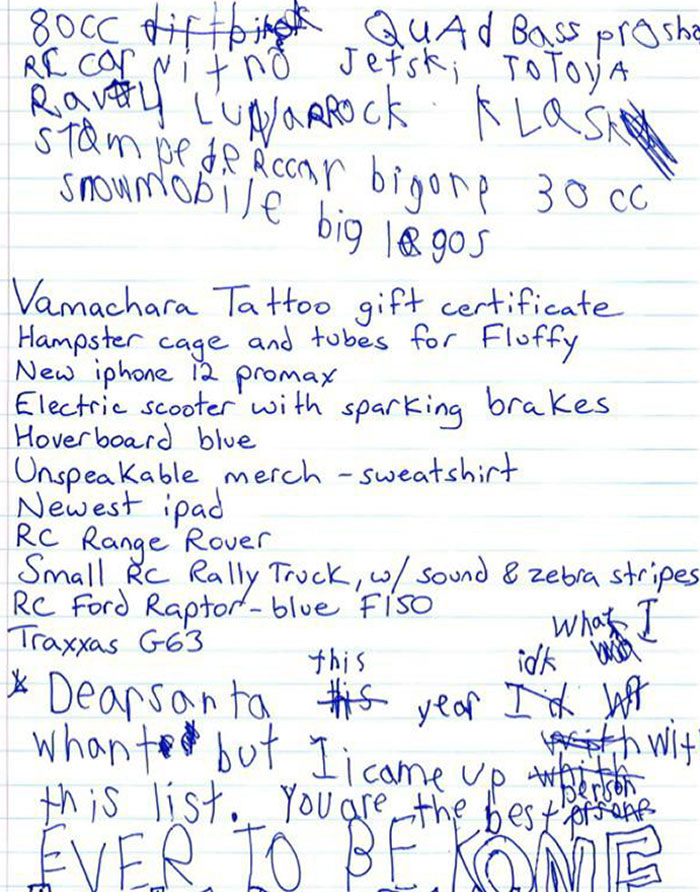 80cc dirtbike QuAd Bass prosho
RC car Nitno Jetski ToToyA
Rav4 LuNARROCK KLaSk
stampede Rccar bigone 30 cc
snowmobile
big legos
Vamachara Tattoo gift certificate
Hampster cage and tubes for Fluffy
New iphone 12 promax
Electric scooter with sparking brakes
Hoverboard blue
Unspeakable merch - sweatshirt
Newest ipad
RC Range Rover
Small RC Rally Truck, w/ sound & zebra stripes
RC Ford Raptor - blue F150
Traxxas G63
What I
this idk
* Dearsanta this year I
whant but I icame up with
person
this list. You are the best
EVER TO BE KOME